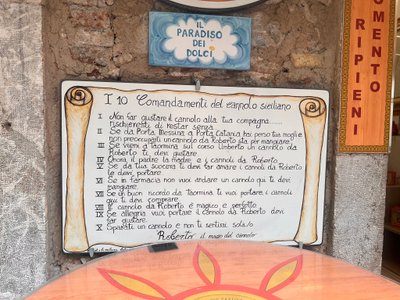 IL
PARADISO
DEI
DOLCI
MOMENTO
RIPIENI
I 10 Comandamenti del cannolo siciliano
I Non far gustare il cannolo alla tua compagna.....
rischieresti di restar senza
II Se da Porta Messina a Porta Catania hai perso tua moglie
non preoccuparti un cannolo da Roberto sta per mangiare
III Se vieni a Taormina sul corso Umberto un cannolo da
Roberto ti devi gustare
IV Onora il padre la madre e i cannoli da Roberto
V Se da tua suocera ti devi far amare i cannoli da Roberto
le devi portare
VI Se in farmacia non vuoi andare un cannolo qui ti devi
mangiare
VII Se un buon ricordo da Taormina ti vuoi portare i cannoli
qui ti devi comprare
VIII Il cannolo da Roberto è magico e perfetto
IX Se allegria vuoi portare il cannolo da Roberto devi
far gustare
X Sparati un cannolo e non ti sentirai solo/a
"Roberto" il mago del cannolo